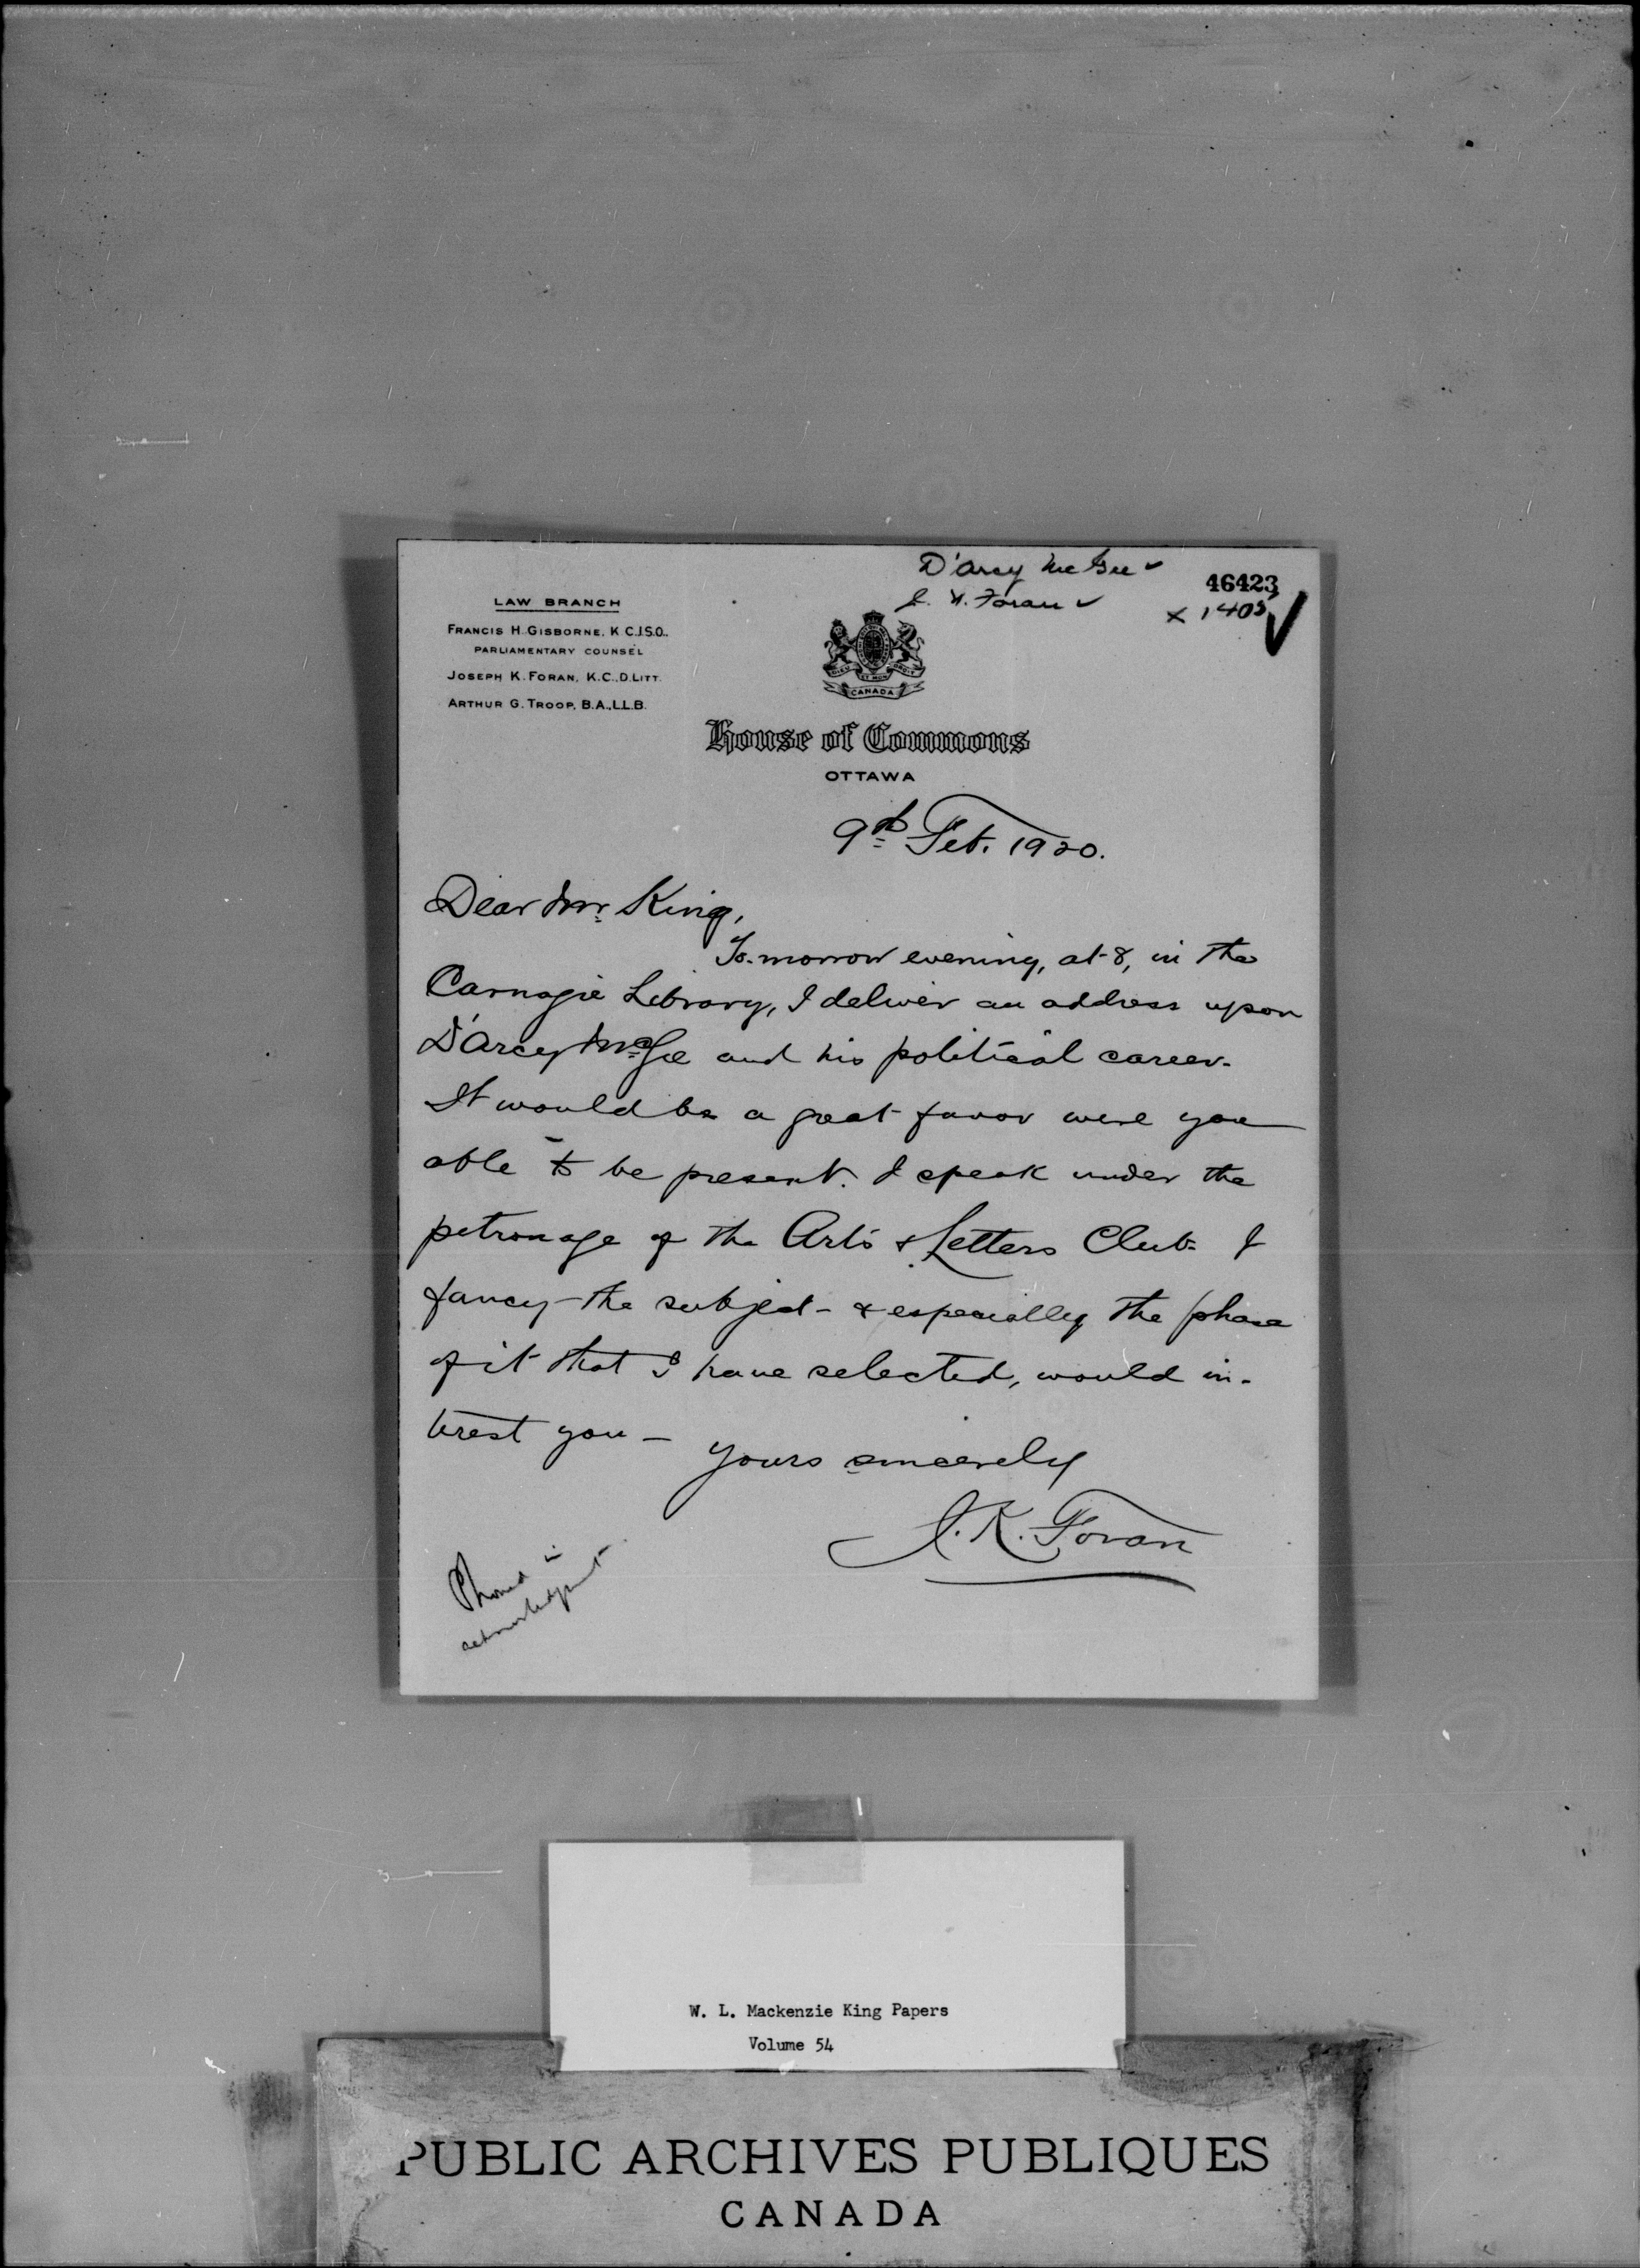 D'Arcy McGee ✓
J. K. Foran ✓
46423
x 1405 ✓
LAW BRANCH
FRANCIS H. GISBORNE, K.C.,I.S.O.,
PARLIAMENTARY COUNSEL
JOSEPH K. FORAN, K.C.,D.LITT.
ARTHUR G. TROOP, B.A.,LL.B.
DIEU ET MON DROIT
CANADA
House of Commons
OTTAWA
9th Feb. 1920.
Dear Mr. King,
To-morrow evening, at 8, in the
Carnagie Library, I deliver an address upon
D'Arcy McGee and his political career.
It would be a great favor were you
able to be present. I speak under the
patronage of the Arts & Letters Club. I
fancy the subject - & especially the phase
of it that I have selected, would in-
terest you -
Yours sincerely
J. K. Foran
Phoned in
acknowledgment
W. L. Mackenzie King Papers
Volume 54
PUBLIC ARCHIVES PUBLIQUES
CANADA